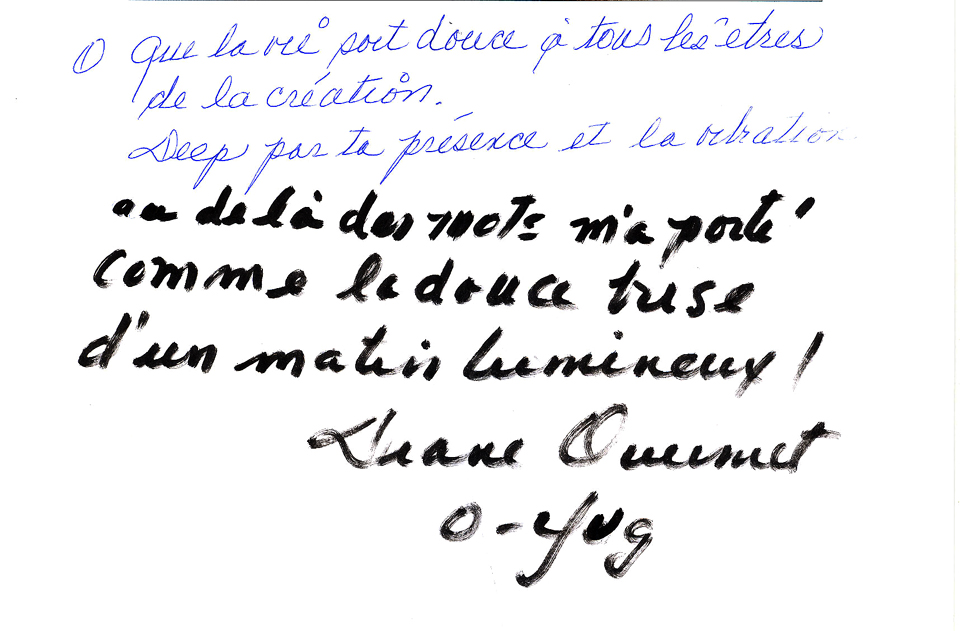 ① Que la vie soit douce à tous les êtres
de la création.
Deep par ta présence et la vibration
au delà des mots m'a porté
comme la douce brise
d'un matin lumineux!
Diane Ouimet
O-Yug